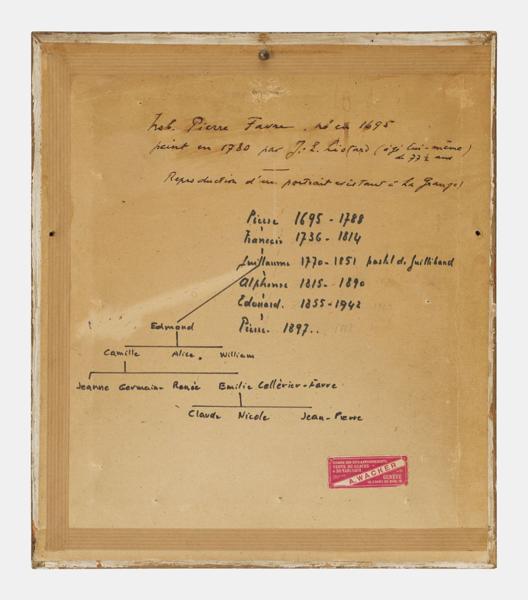 Nob. Pierre Favre, né en 1695
peint en 1780 par J. E. Liotard (âgé lui-même)
de 77½ ans
Reproduction d'un portrait existant à La Grange!
Pierre 1695 - 1788
François 1736 - 1814
Guillaume 1770 - 1851 pastel de Guillibaud
Alphonse 1815 - 1890
Edouard. 1855 - 1942
Pierre. 1897..
Edmond
Camille Alice. William
Jeanne Germain- Renée Emilie Cellérier-Favre
Claude Nicole Jean-Pierre
VENTE DE GLACES
A. WACKER
GENÈVE